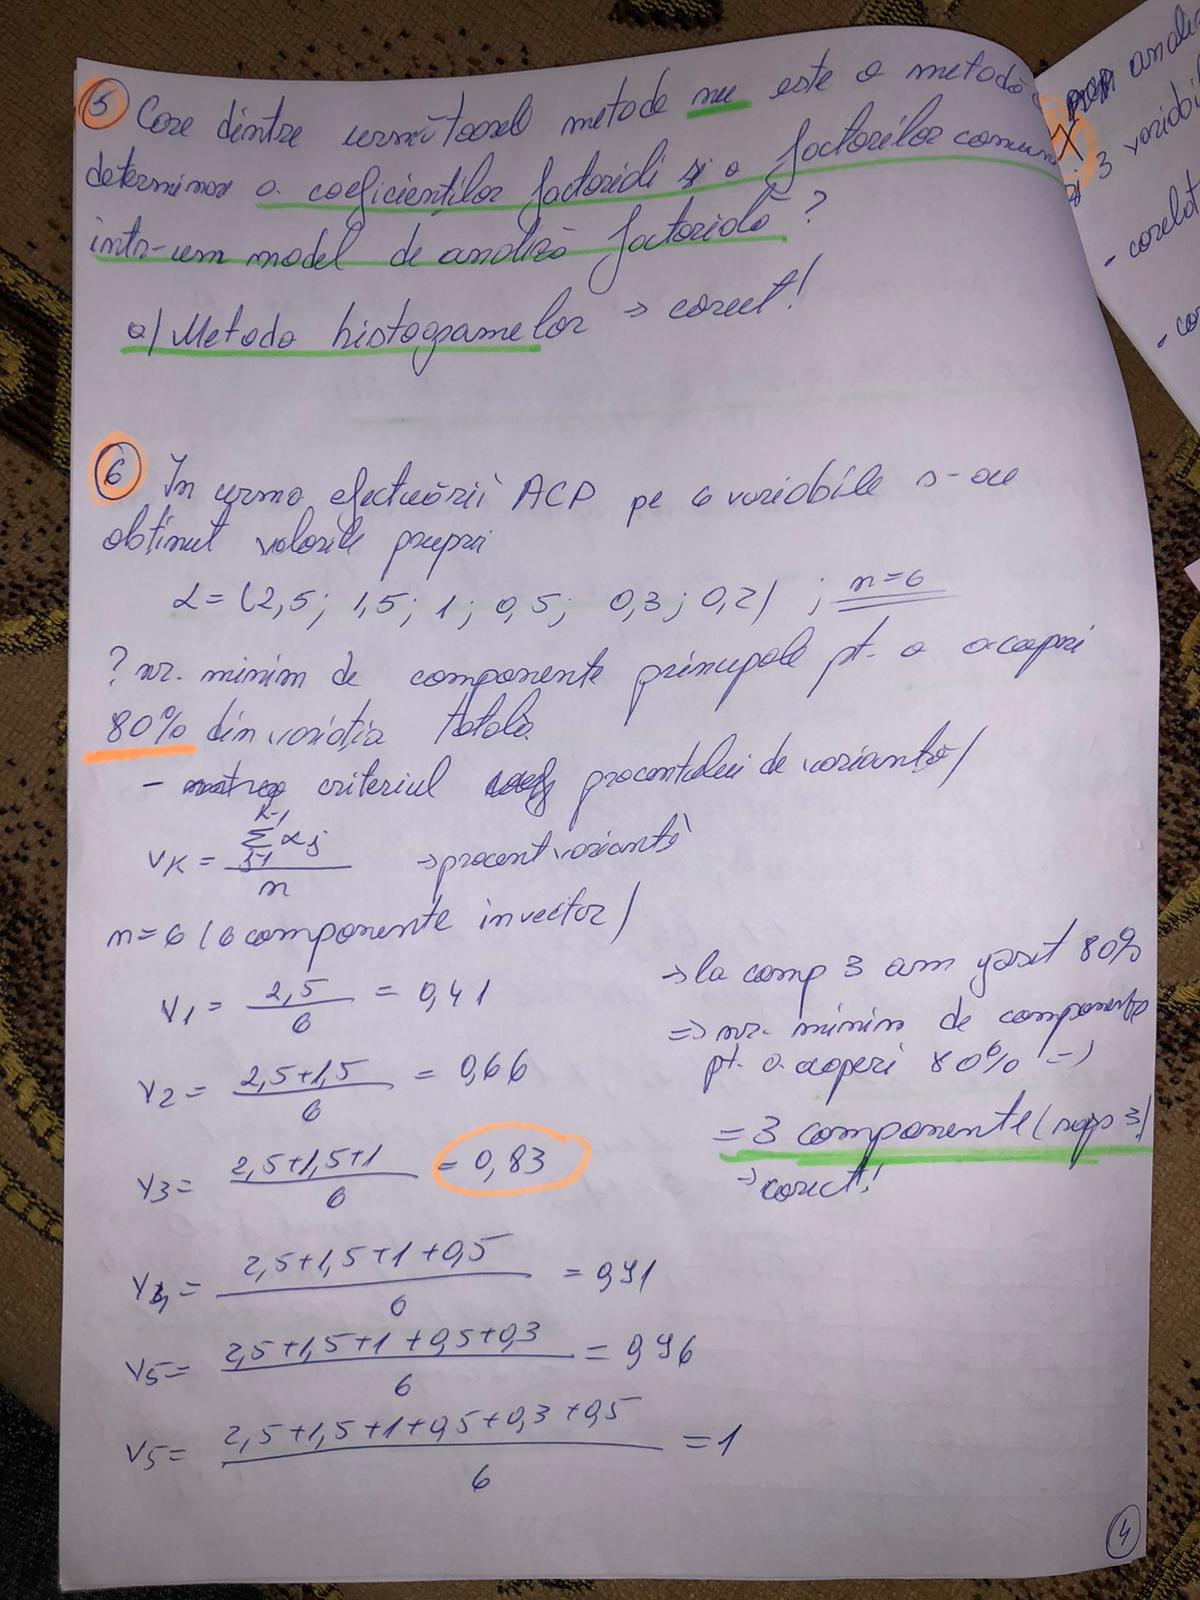 5 Care dintre următoarele metode nu este o metodă
determinare a coeficienților factoriali și a factorilor comuni
într-un model de analiză factorială ?
a) Metoda histogramelor → corect!
6 În urma efectuării ACP pe 6 variabile s-au
obținut valorile proprii
α = (2,5; 1,5; 1; 0,5; 0,3; 0,2) ; n=6
? nr. minim de componente principale pt. a acoperi
80% din variația totală.
- criteriul procentului de varianță)
vK = Σ αj / n → procent varianță
K-1
j=1
n=6 (6 componente în vector)
V1 = 2,5 / 6 = 0,41
V2 = 2,5+1,5 / 6 = 0,66
V3 = 2,5+1,5+1 / 6 = 0,83
V4 = 2,5+1,5+1+0,5 / 6 = 0,91
V5 = 2,5+1,5+1+0,5+0,3 / 6 = 0,96
V5 = 2,5+1,5+1+0,5+0,3+0,5 / 6 = 1
→ la comp 3 am găsit 80%
=> nr. minim de componente
pt. a acoperi 80% =)
= 3 componente (rasp 3)
→ corect!
4
7 ACP
3 variabi
- corelat
- co